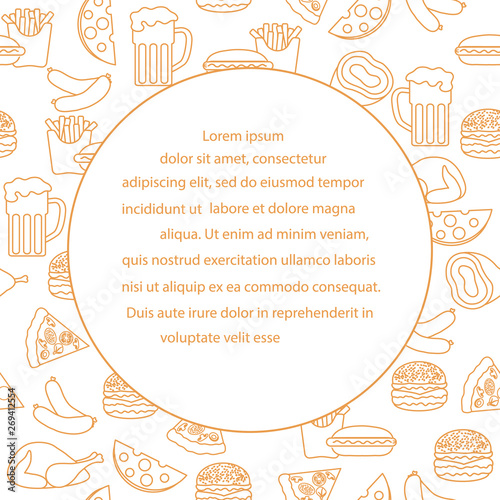 Lorem ipsum
dolor sit amet, consectetur
adipiscing elit, sed do eiusmod tempor
incididunt ut labore et dolore magna
aliqua. Ut enim ad minim veniam,
quis nostrud exercitation ullamco laboris
nisi ut aliquip ex ea commodo consequat.
Duis aute irure dolor in reprehenderit in
voluptate velit esse
Adobe Stock | #269412554